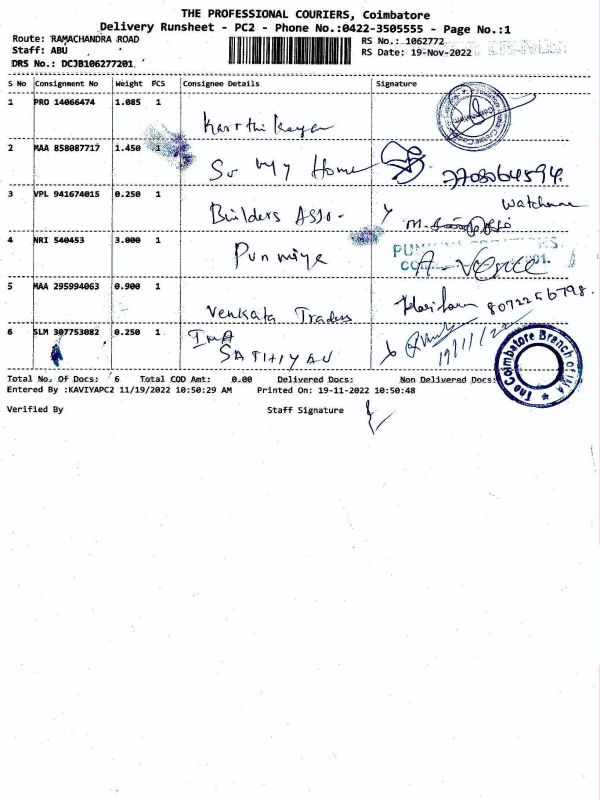 THE PROFESSIONAL COURIERS, Coimbatore
Delivery Runsheet - PC2 - Phone No.:0422-3505555 - Page No.:1
Route: RAMACHANDRA ROAD
Staff: ABU
DRS No.: DCJB106277201
RS No.: 1062772
RS Date: 19-Nov-2022
S No Consignment No Weight PCS Consignee Details Signature
1 PRO 14066474 1.085 1 Karthikeyan
2 MAA 858087717 1.450 1 Home
3 VPL 941674015 0.250 1 Builders Asso-
4 NRI 540453 3.000 1 Punmiya
5 MAA 295994063 0.900 1 Venkata Traders 8072256798.
6 SLM 307753082 0.250 1 IMA
SATHIYAN 19/11/22
The Coimbatore Branch of IMA
Total No. Of Docs: 6 Total COD Amt: 0.00 Delivered Docs: Non Delivered Docs:
Entered By :KAVIYAPC2 11/19/2022 10:50:29 AM Printed On: 19-11-2022 10:50:48
Verified By Staff Signature